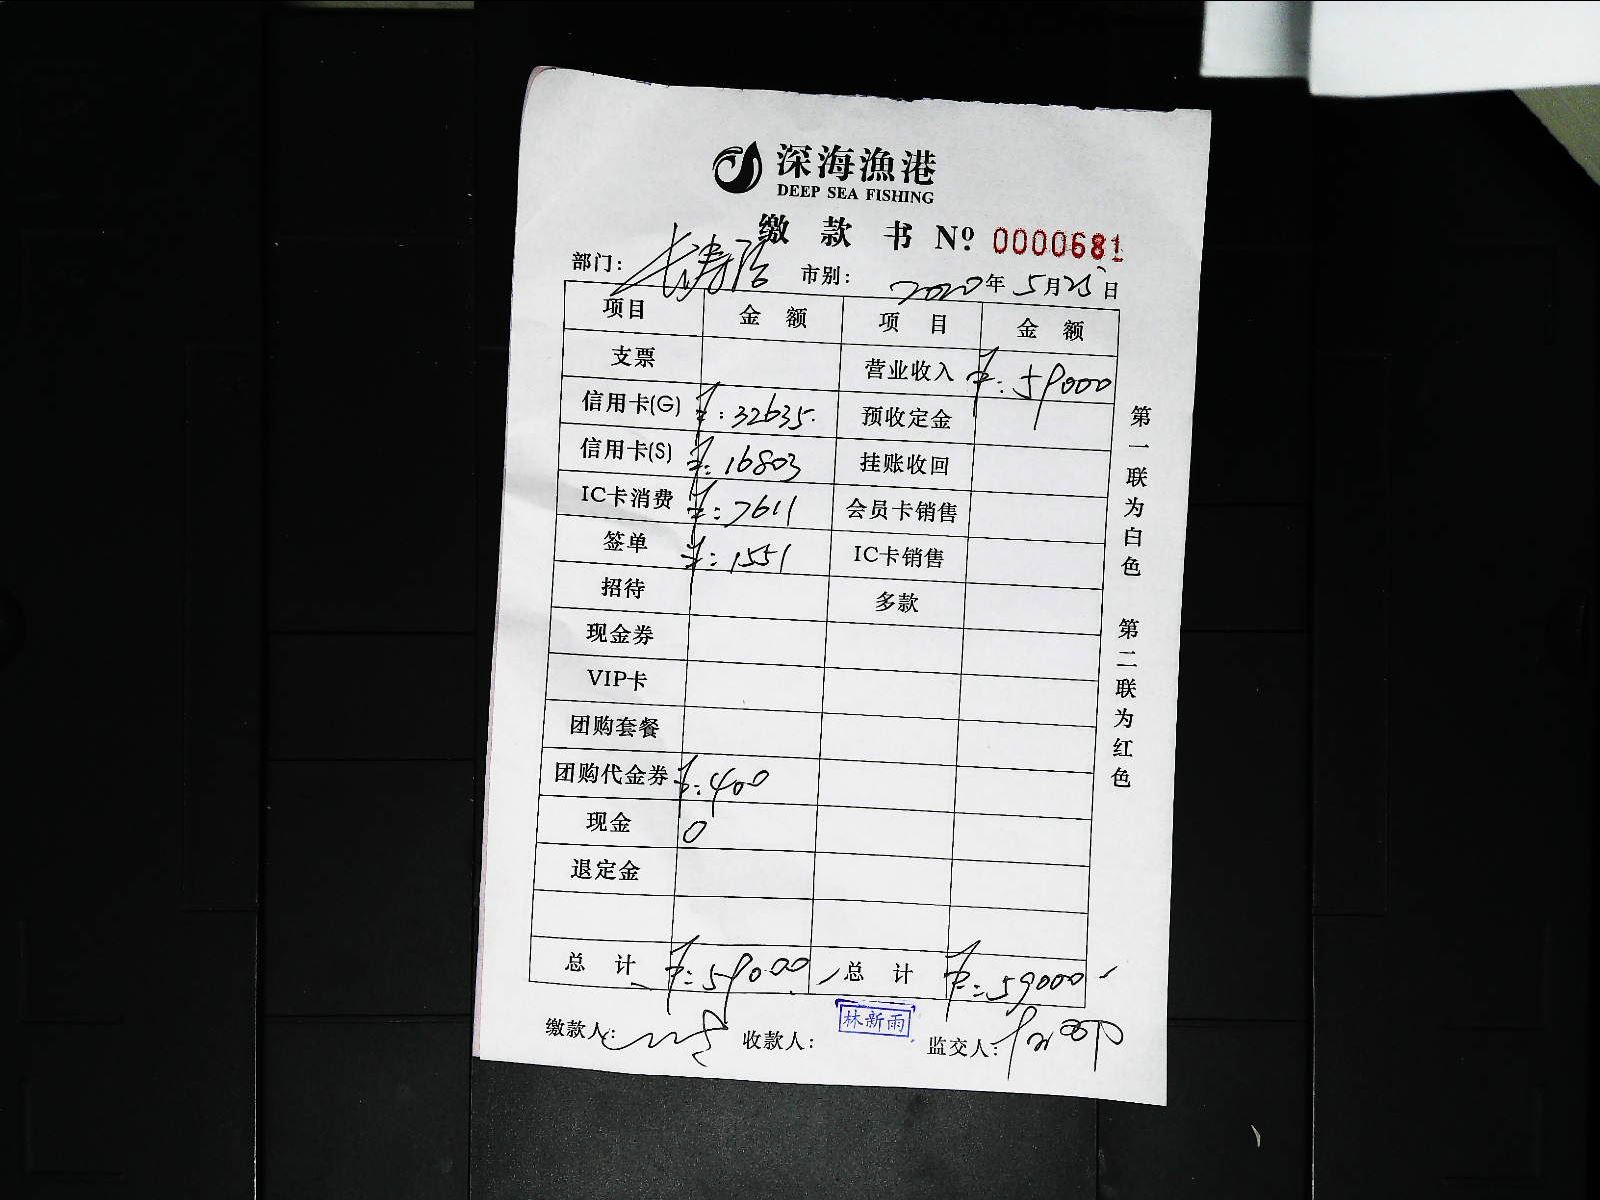 深海漁港
DEEP SEA FISHING
缴款书 Nº 0000681
部门: 长寿路 市别: 2020年5月25日
项目 金额 项目 金额
支票 营业收入 ¥:59000
信用卡(G) ¥:32635. 预收定金
信用卡(S) ¥:16803 挂账收回
IC卡消费 ¥:7611 会员卡销售
签单 ¥:1551 IC卡销售
招待 多款
现金券
VIP卡
团购套餐
团购代金券 ¥:400
现金 0
退定金
总计 ¥:59000 总计 ¥:59000
缴款人: 收款人: 林新雨 监交人:
第一联为白色 第二联为红色